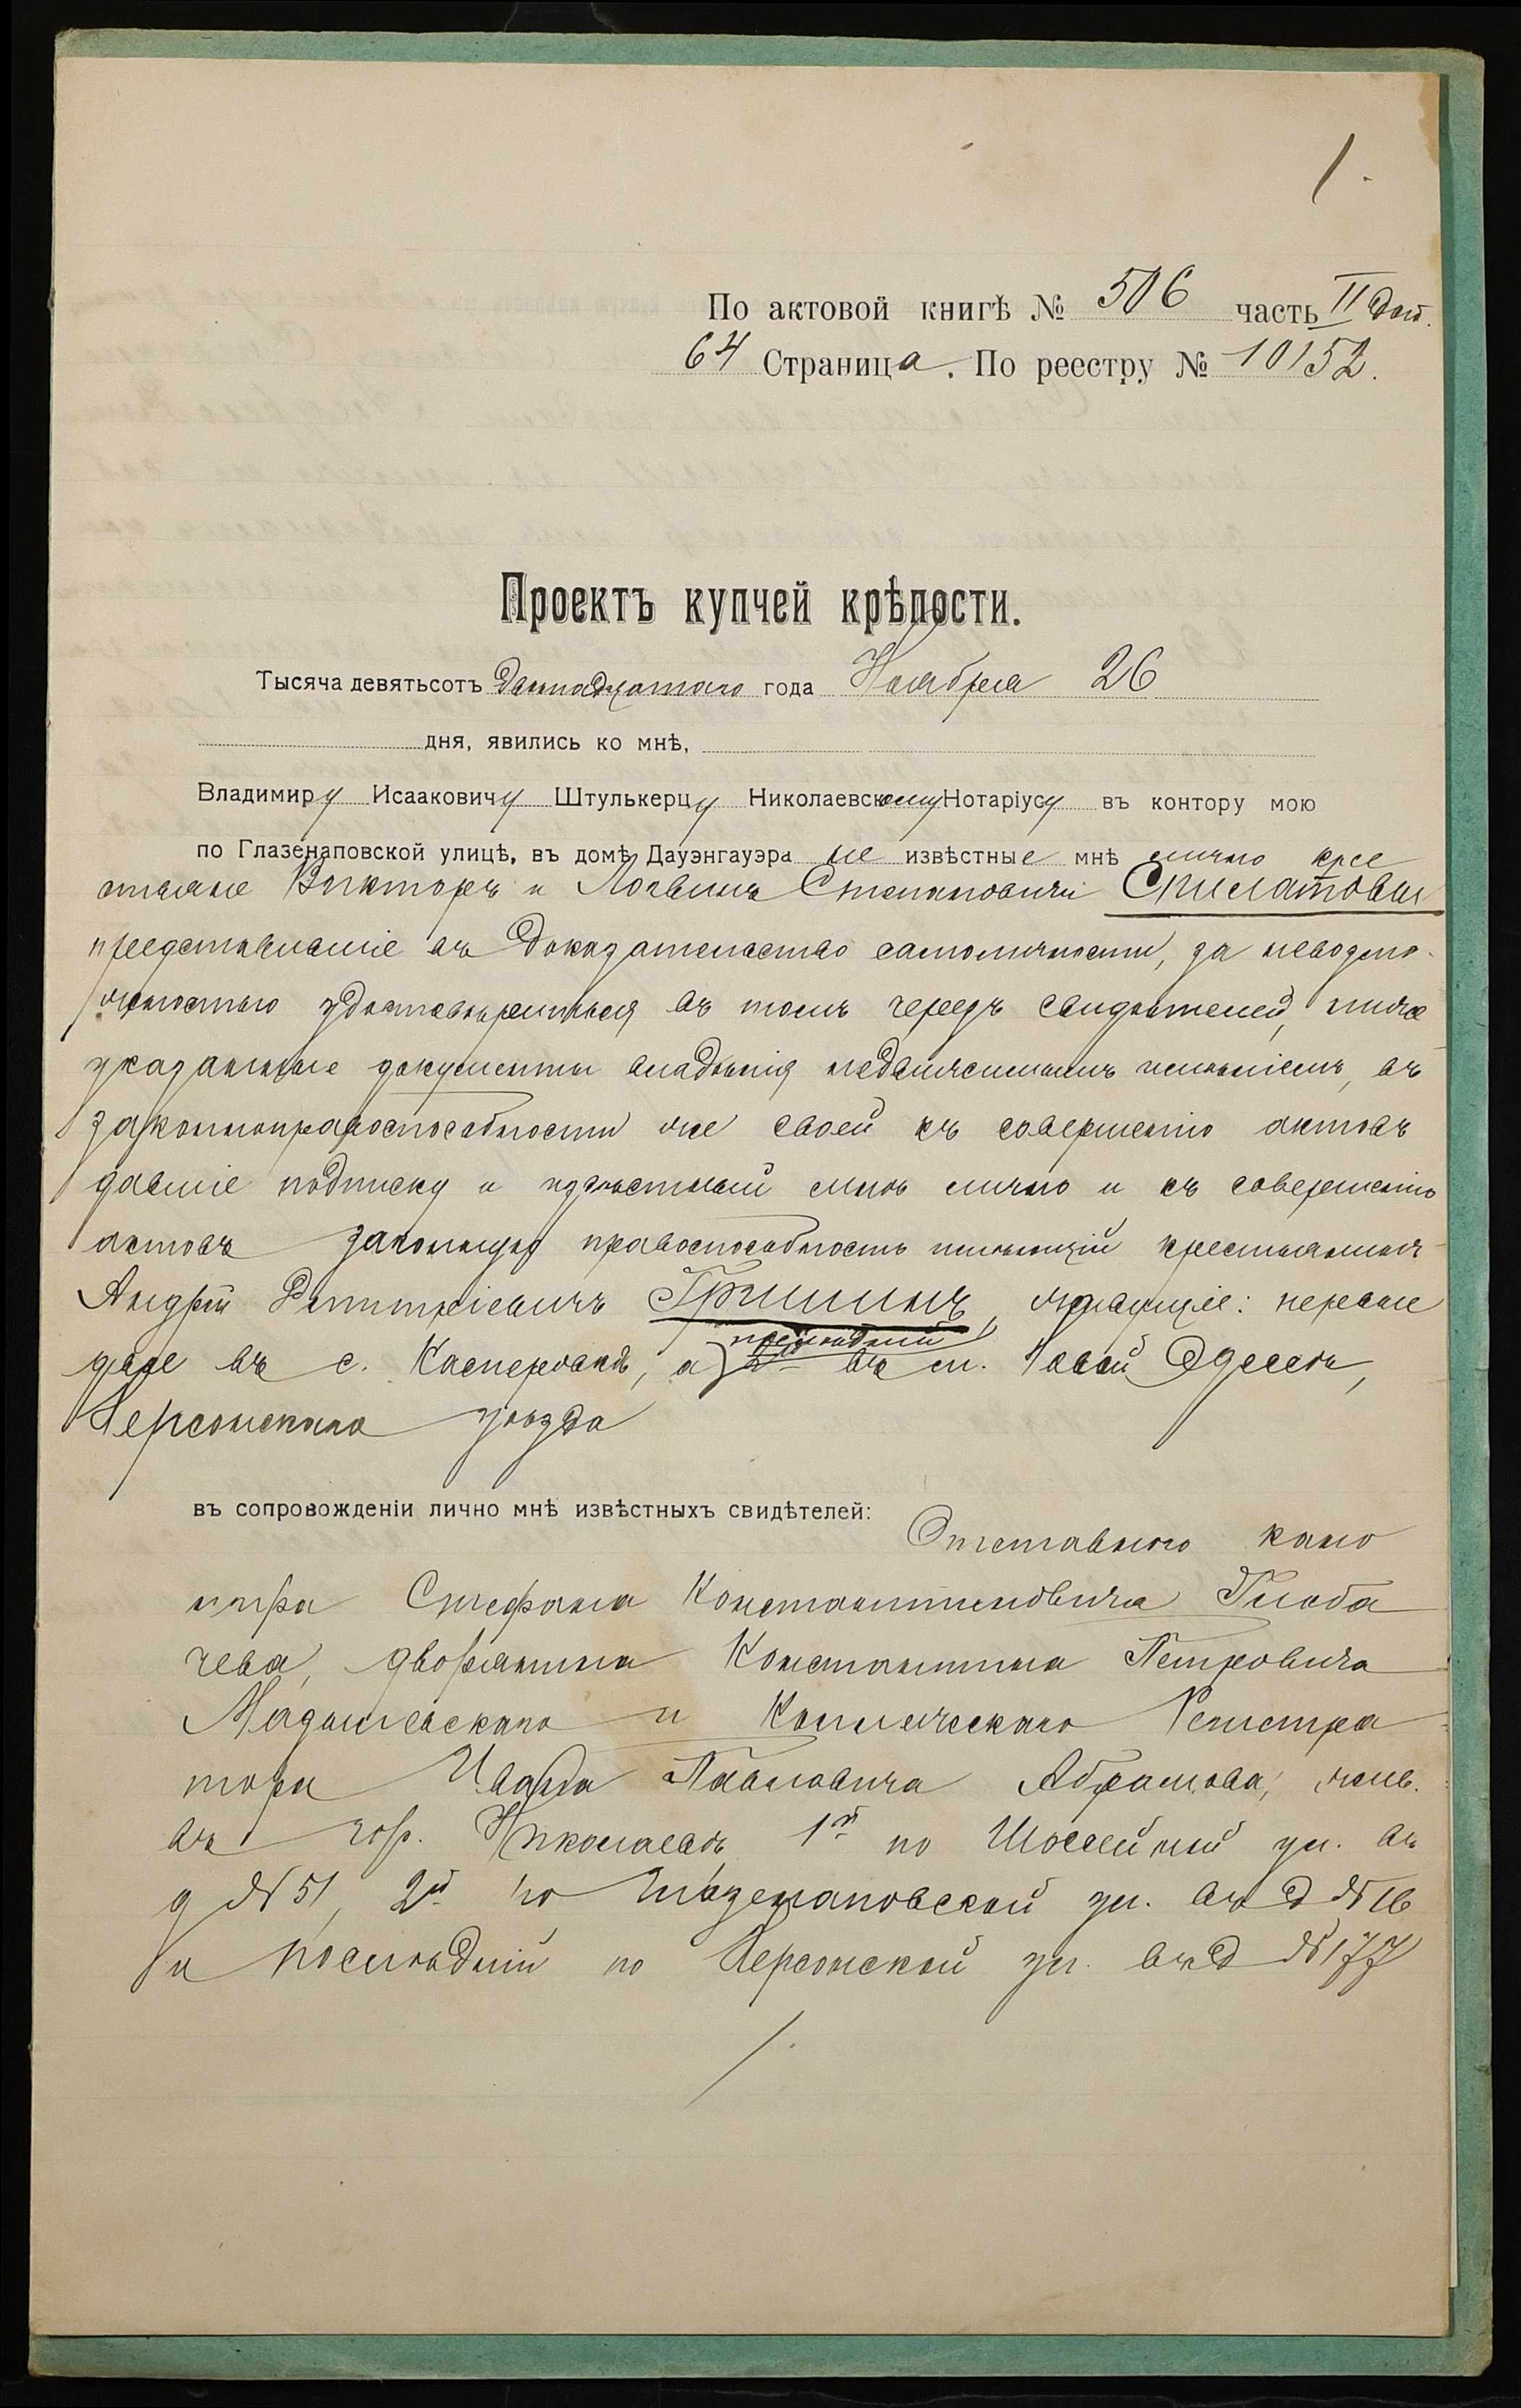 1.
По актовой книгѣ № 506 часть II доп.
64 Страница. По реестру № 10152.
Проектъ купчей крѣпости.
Тысяча девятьсотъ двѣнадцатаго года Ноября 26
дня, явились ко мнѣ,
Владимиру Исааковичу Штулькерцу Николаевскому Нотаріусу въ контору мою
по Глазенаповской улицѣ, въ домѣ Дауэнгауэра не извѣстные мнѣ лично кре
стьяне Викторъ и Логвинъ Степановичи
представившіе въ доказательство самоличности, за невозмо-
жностью удостовѣриться въ томъ черезъ свидѣтелей, ниже
указанные документы владѣнія недвижимымъ имѣніемъ, въ
законноправоспособности же своей къ совершенію актовъ
давшіе подписку и извѣстный мнѣ лично и къ совершенію
актовъ законную правоспособность имѣющій крестьянинъ
Андрей Гришинъ, живущіе: первые
двое въ с. Касперовкѣ, а послѣдній въ м. Новой Одессѣ,
Херсонскаго уѣзда
въ сопровожденіи лично мнѣ извѣстныхъ свидѣтелей:
Отставного кано
нира Стефана Константиновича Глоба
чева, дворянина Константина Петровича
и Коллежскаго Регистра
тора Ивана Павловича Абрамова, жив.
въ гор. Николаевѣ, 1й по Шоссейной ул. въ
д №51, 2й по Глазенаповской ул. въ д №16
и послѣдній по Херсонской ул. въ д №177